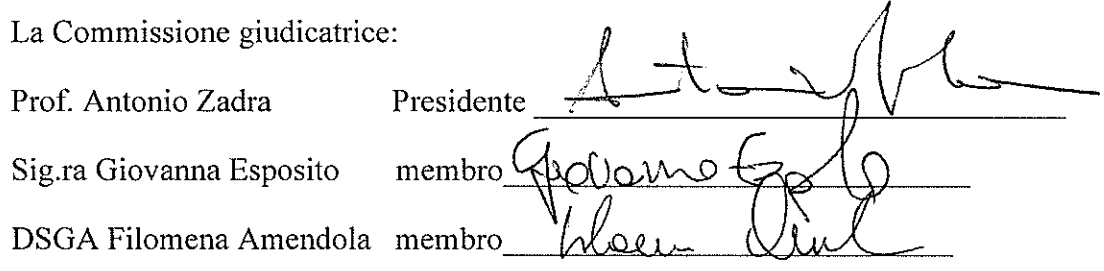 La Commissione giudicatrice:
Prof. Antonio Zadra Presidente
Sig.ra Giovanna Esposito membro Giovanna Esposito
DSGA Filomena Amendola membro